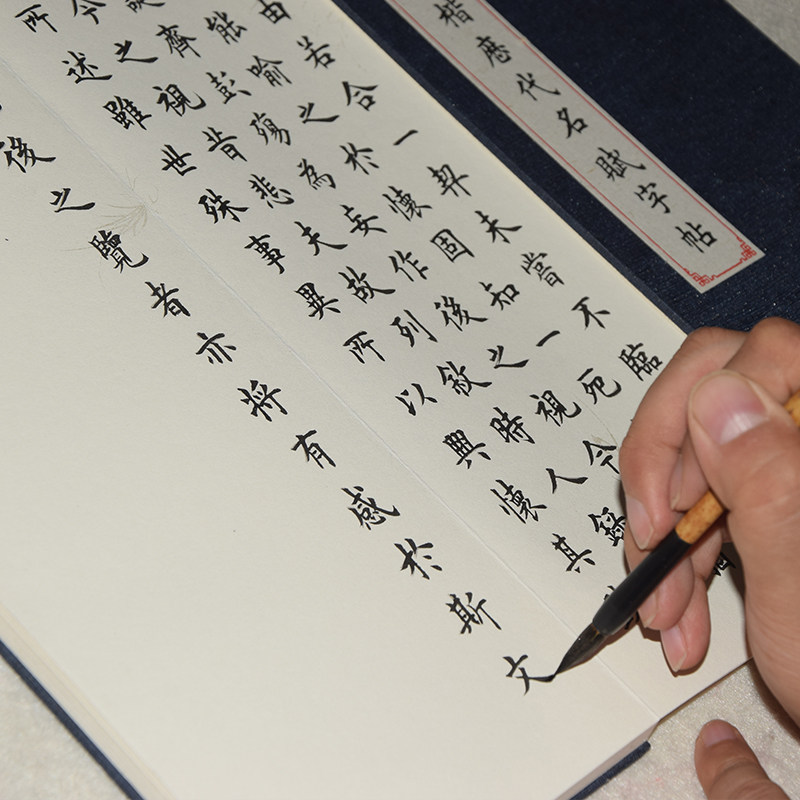 楷歷代名賦字帖
由若合一契未嘗不臨
能喻之於懷固知一死
齊彭殤為妄作後之視今
今之視昔悲夫故列敘時人錄
所述雖世殊事異所以興懷其
後之覽者亦將有感於斯文